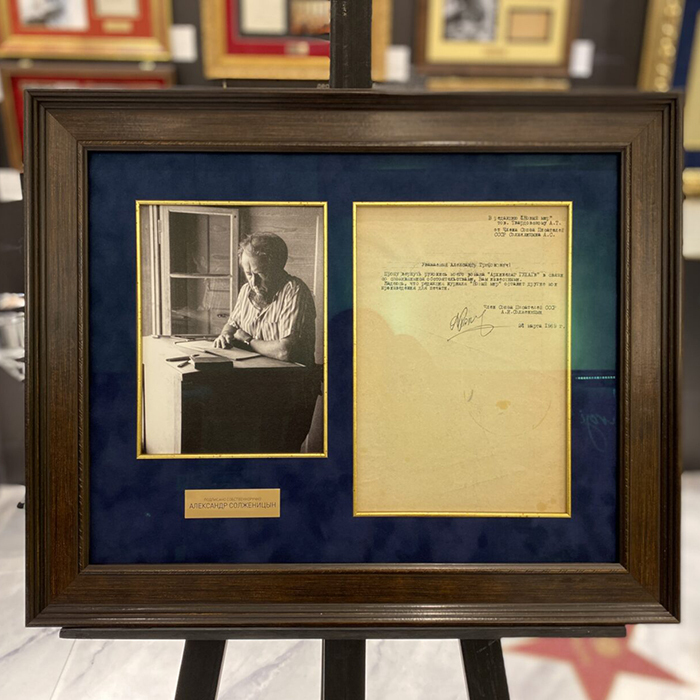 В редакцию "Новый мир"
тов. Твардовскому А.Т.
от Члена Союза Писателей
СССР Солженицына А.С.
Уважаемый Александр Трифонович!
Прошу вернуть рукопись моего романа "Архипелаг ГУЛАГ" в связи
по обстоятельствам, Вам известным.
Надеюсь, что редакция журнала "Новый мир" оставит другие мои
произведения для печати.
Член Союза Писателей СССР
А.И.Солженицын
марта
АЛЕКСАНДР СОЛЖЕНИЦЫН